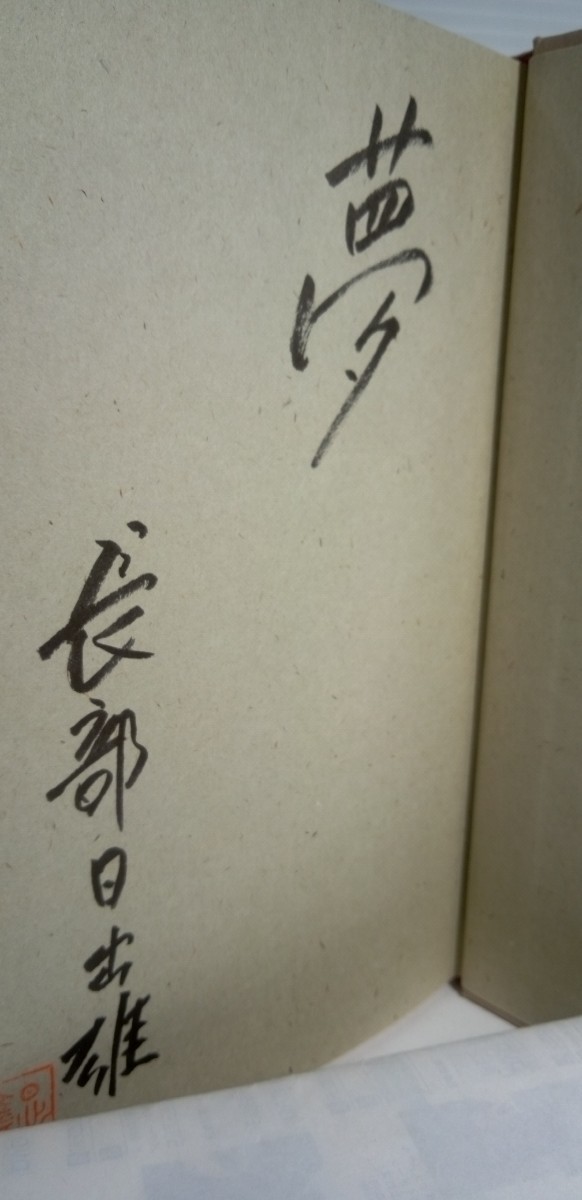 夢
長部日出雄